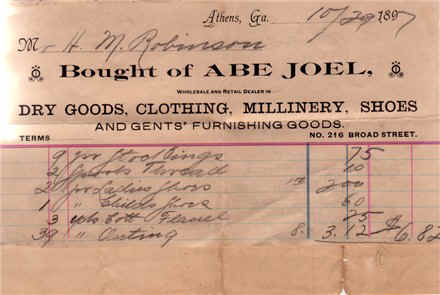 Athens, Ga. 10/29 1897
Mr H. M. Robinson
Bought of ABE JOEL,
WHOLESALE AND RETAIL DEALER IN
DRY GOODS, CLOTHING, MILLINERY, SHOES
AND GENTS' FURNISHING GOODS.
TERMS NO. 216 BROAD STREET.
9 pr Stockings 75
2 Spools Thread 10
2 pr Ladies Shoes 1.00 200
1 " Childs Shoes 60
3 yds Cott Flannel 25
39 " Outing 8. 3.12 $6.82